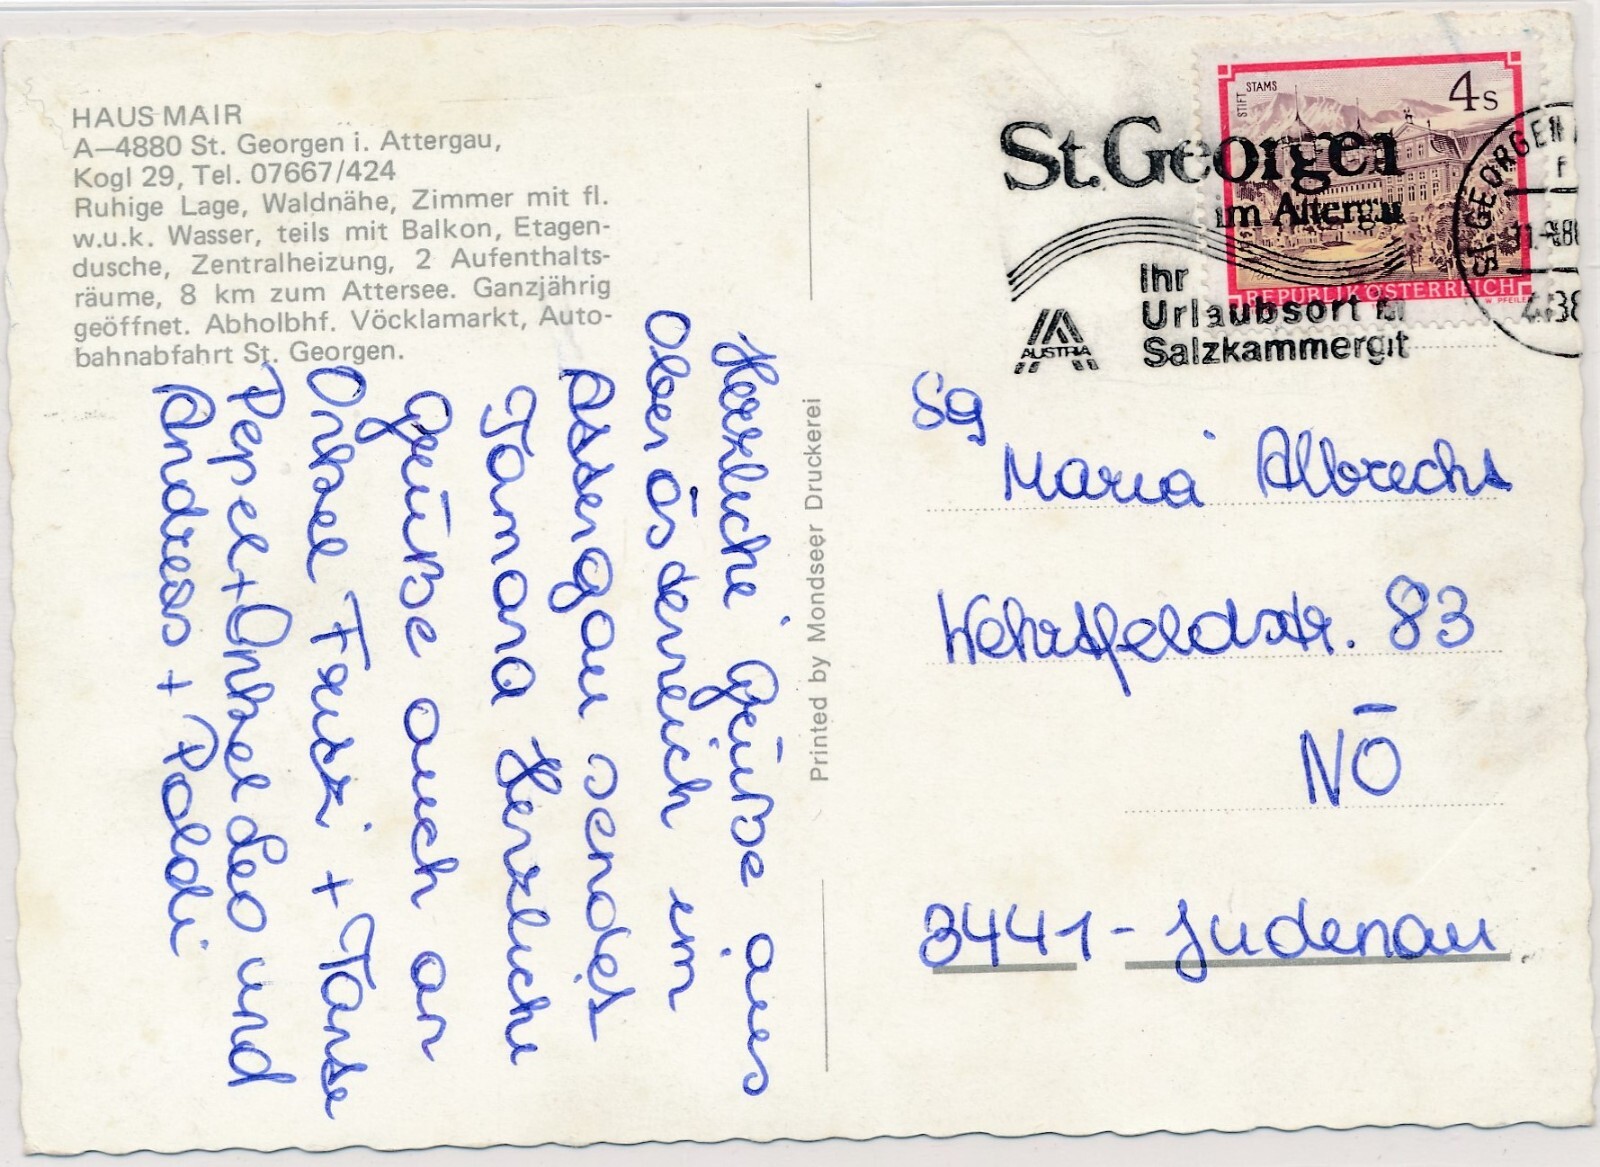 HAUS MAIR
A—4880 St. Georgen i. Attergau,
Kogl 29, Tel. 07667/424
Ruhige Lage, Waldnähe, Zimmer mit fl.
w.u.k. Wasser, teils mit Balkon, Etagen-
dusche, Zentralheizung, 2 Aufenthalts-
räume, 8 km zum Attersee. Ganzjährig
geöffnet. Abholbhf. Vöcklamarkt, Auto-
bahnabfahrt St. Georgen.
Herzliche Grüße aus
Oberösderreich im
Attergau sendet
Tamara Herzliche
Grüße auch an
Onkel Franz + Tante
Pepel + Onkel Leo und
Andreas + Poldi
Printed by Mondseer Druckerei
STIFT STAMS
4s
REPUBLIK ÖSTERREICH
W. PFEILER
St. Georgen
im Attergau
Ihr
Urlaubsort im
Salzkammergut
AUSTRIA
ST. GEORGEN
Sg
Maria Albrecht
Wehrtfeldstr. 83
NÖ
3441 - Judenau